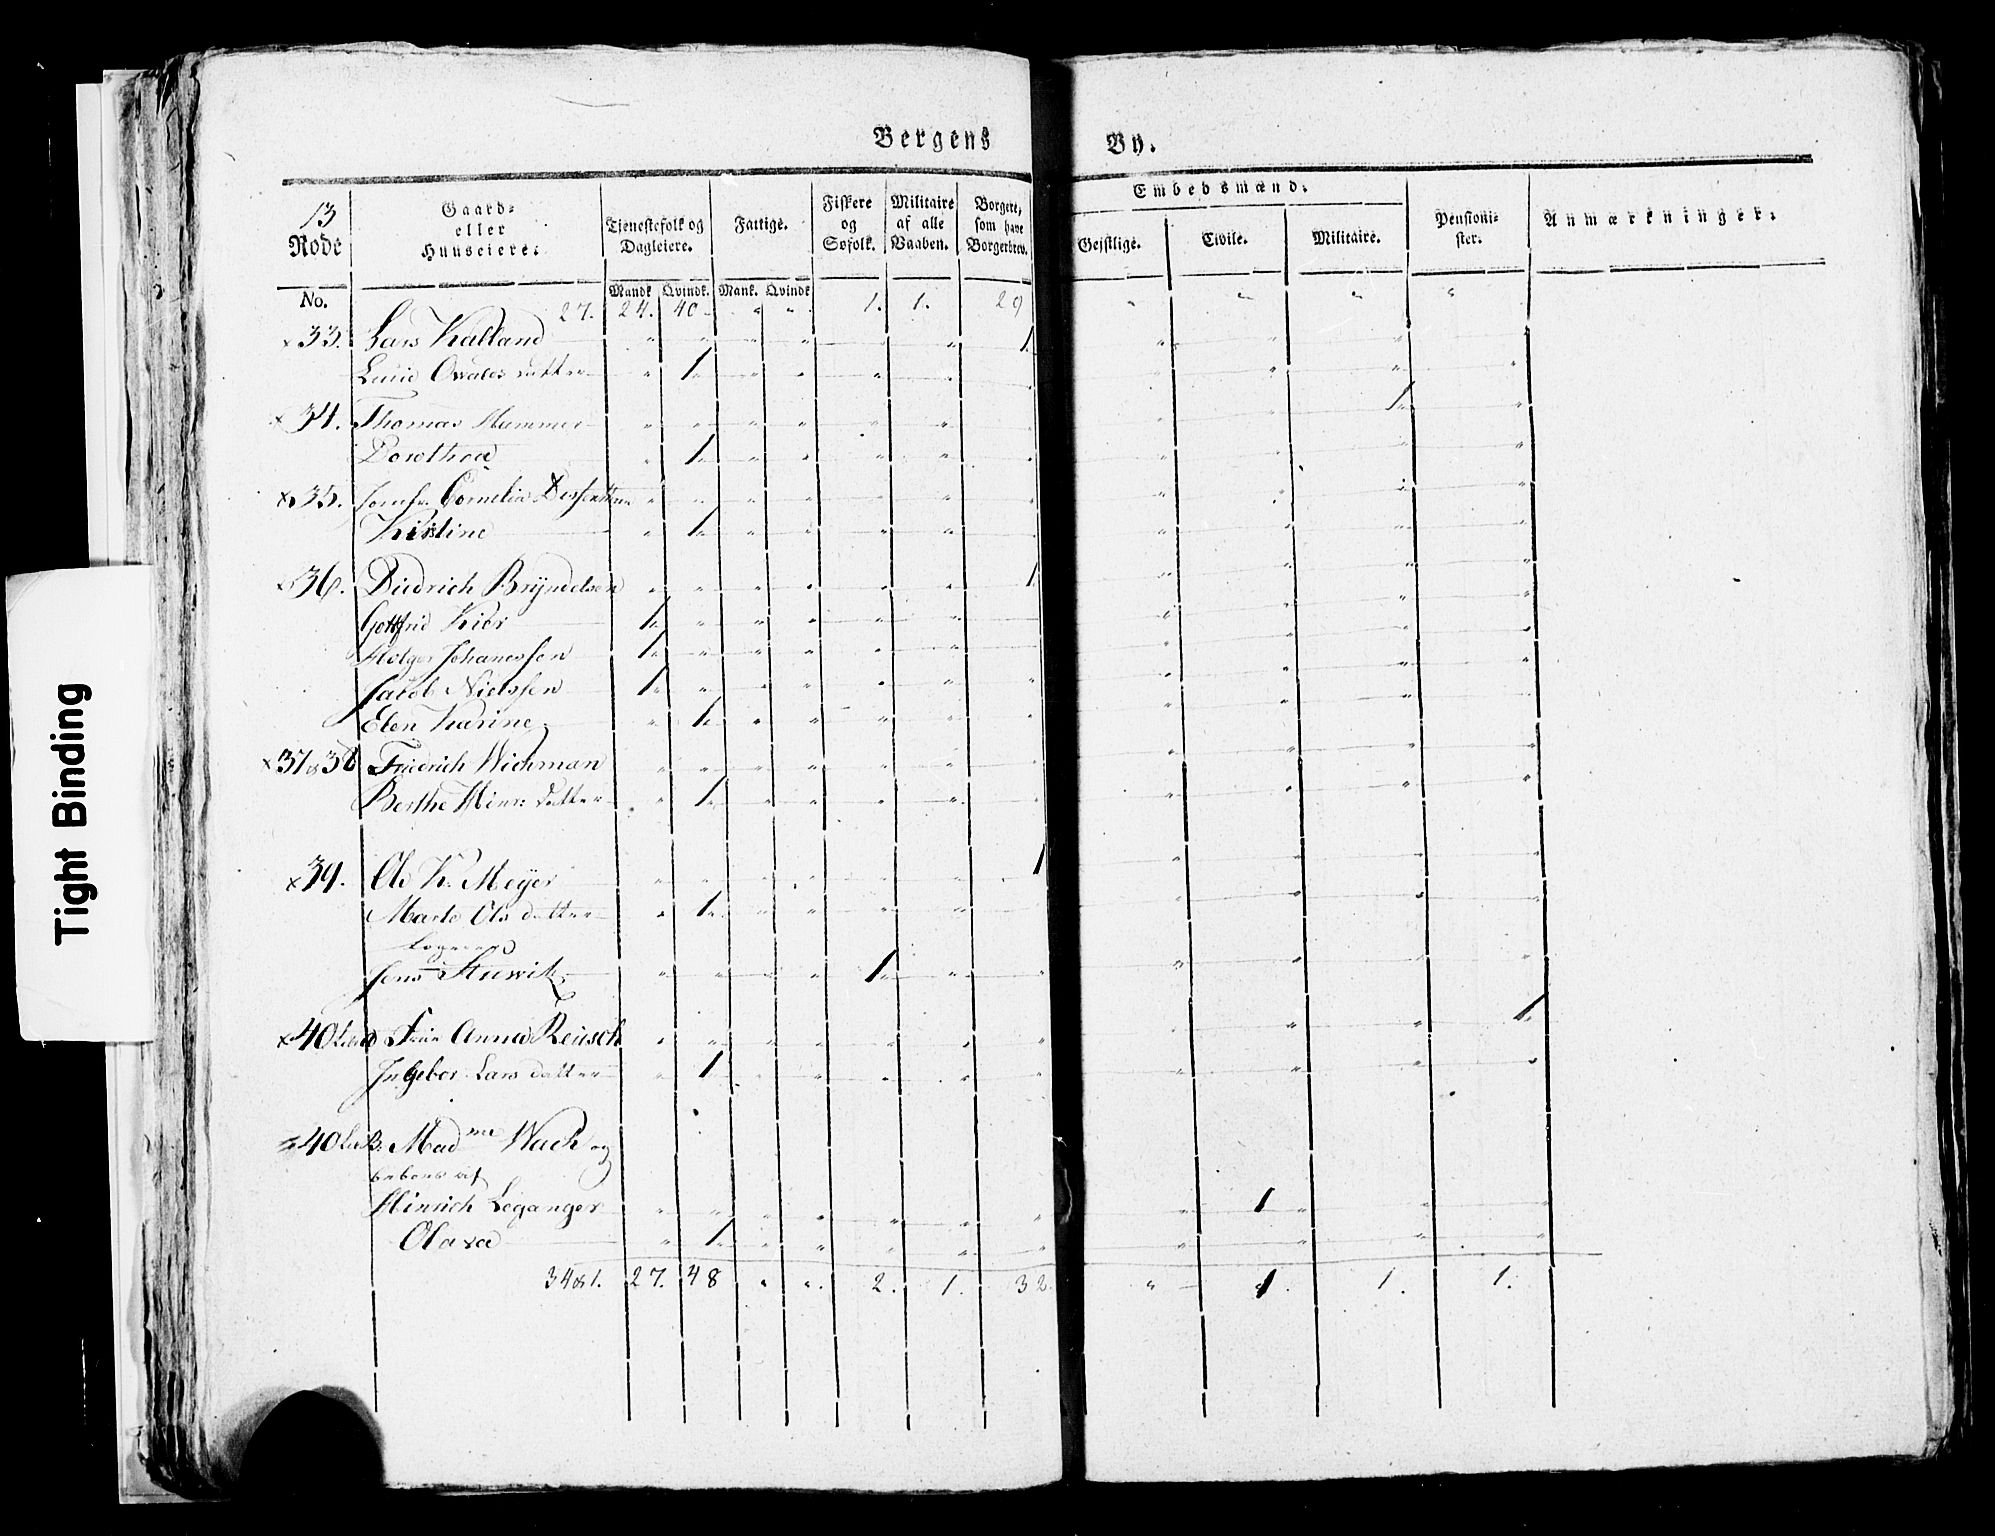 Tight Binding
Bergens By.
13
Rode
No.
Gaard-
eller
Huuseiere.
Tjenestefolk og
Dagleiere.
Mandk. Qvindk.
Fattige.
Mank. Qvindk
Fiskere
og
Søfolk.
Militaire
af alle
Vaaben.
Borgere,
som have
Borgerbrev.
Embedsmænd.
Gejstlige. Civile. Militaire.
Pensioni-
ster.
Anmærkninger.
27. 24. 40 " " 1. 1. 29 " " " "
x 33. Lars Kalland " " " " " " 1 " " "
datter " 1 " " " " " " " "
x 34. Thomas Hammer " " " " " " " " " 1 "
Dorothea " 1 " " " " " " " "
x 35. Jomfr. Cornelia " " " " " " " " " "
Kirstine " 1 " " " " " " " "
x 36. Diedrich Bryndelsen " " " " " " 1 " " " "
Gottfrid Kier 1 " " " " " " " "
Holger Johanessen 1 " " " " " " " "
Jacob Nielssen 1 " " " " " " " " "
Elen Karine " 1 " " " " " " " "
x 37 & 38 Friedrich Wichman " " " " " " " " " " "
Berthe Hinr: datter " 1 " " " " " " " "
x 39. Ole K. Meyer " " " " " " 1 " " " "
Marte Ols datter " 1 " " " " " " "
Logerende
Jens Stuwitz " " " " 1 " " " " " "
x 40 Frue Anna Reusch " " " " " " " " " " 1
Ingebor Lars datter " 1 " " " " " " " "
40 Lit B. Madme Wach og
beboes af
Hinrich Leganger " " " " " " " " 1 " " "
Olava " 1 " " " " " " " " "
34 & 1. 27. 48 " " 2. 1. 32. " 1. 1. 1.